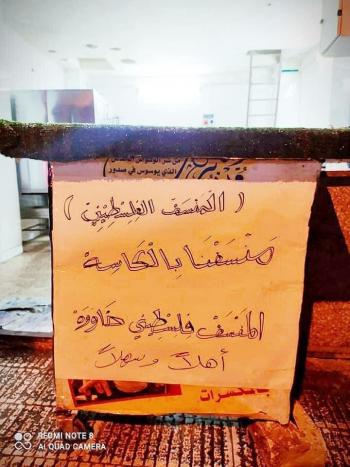 من شر الوسواس الخناس
الذي يوسوس في صدور
( المنسف الفلسطيني )
منسفنا بالكاسة
المنسف فلسطيني هاووه
أهلاً وسهلاً
REDMI NOTE 8
AI QUAD CAMERA